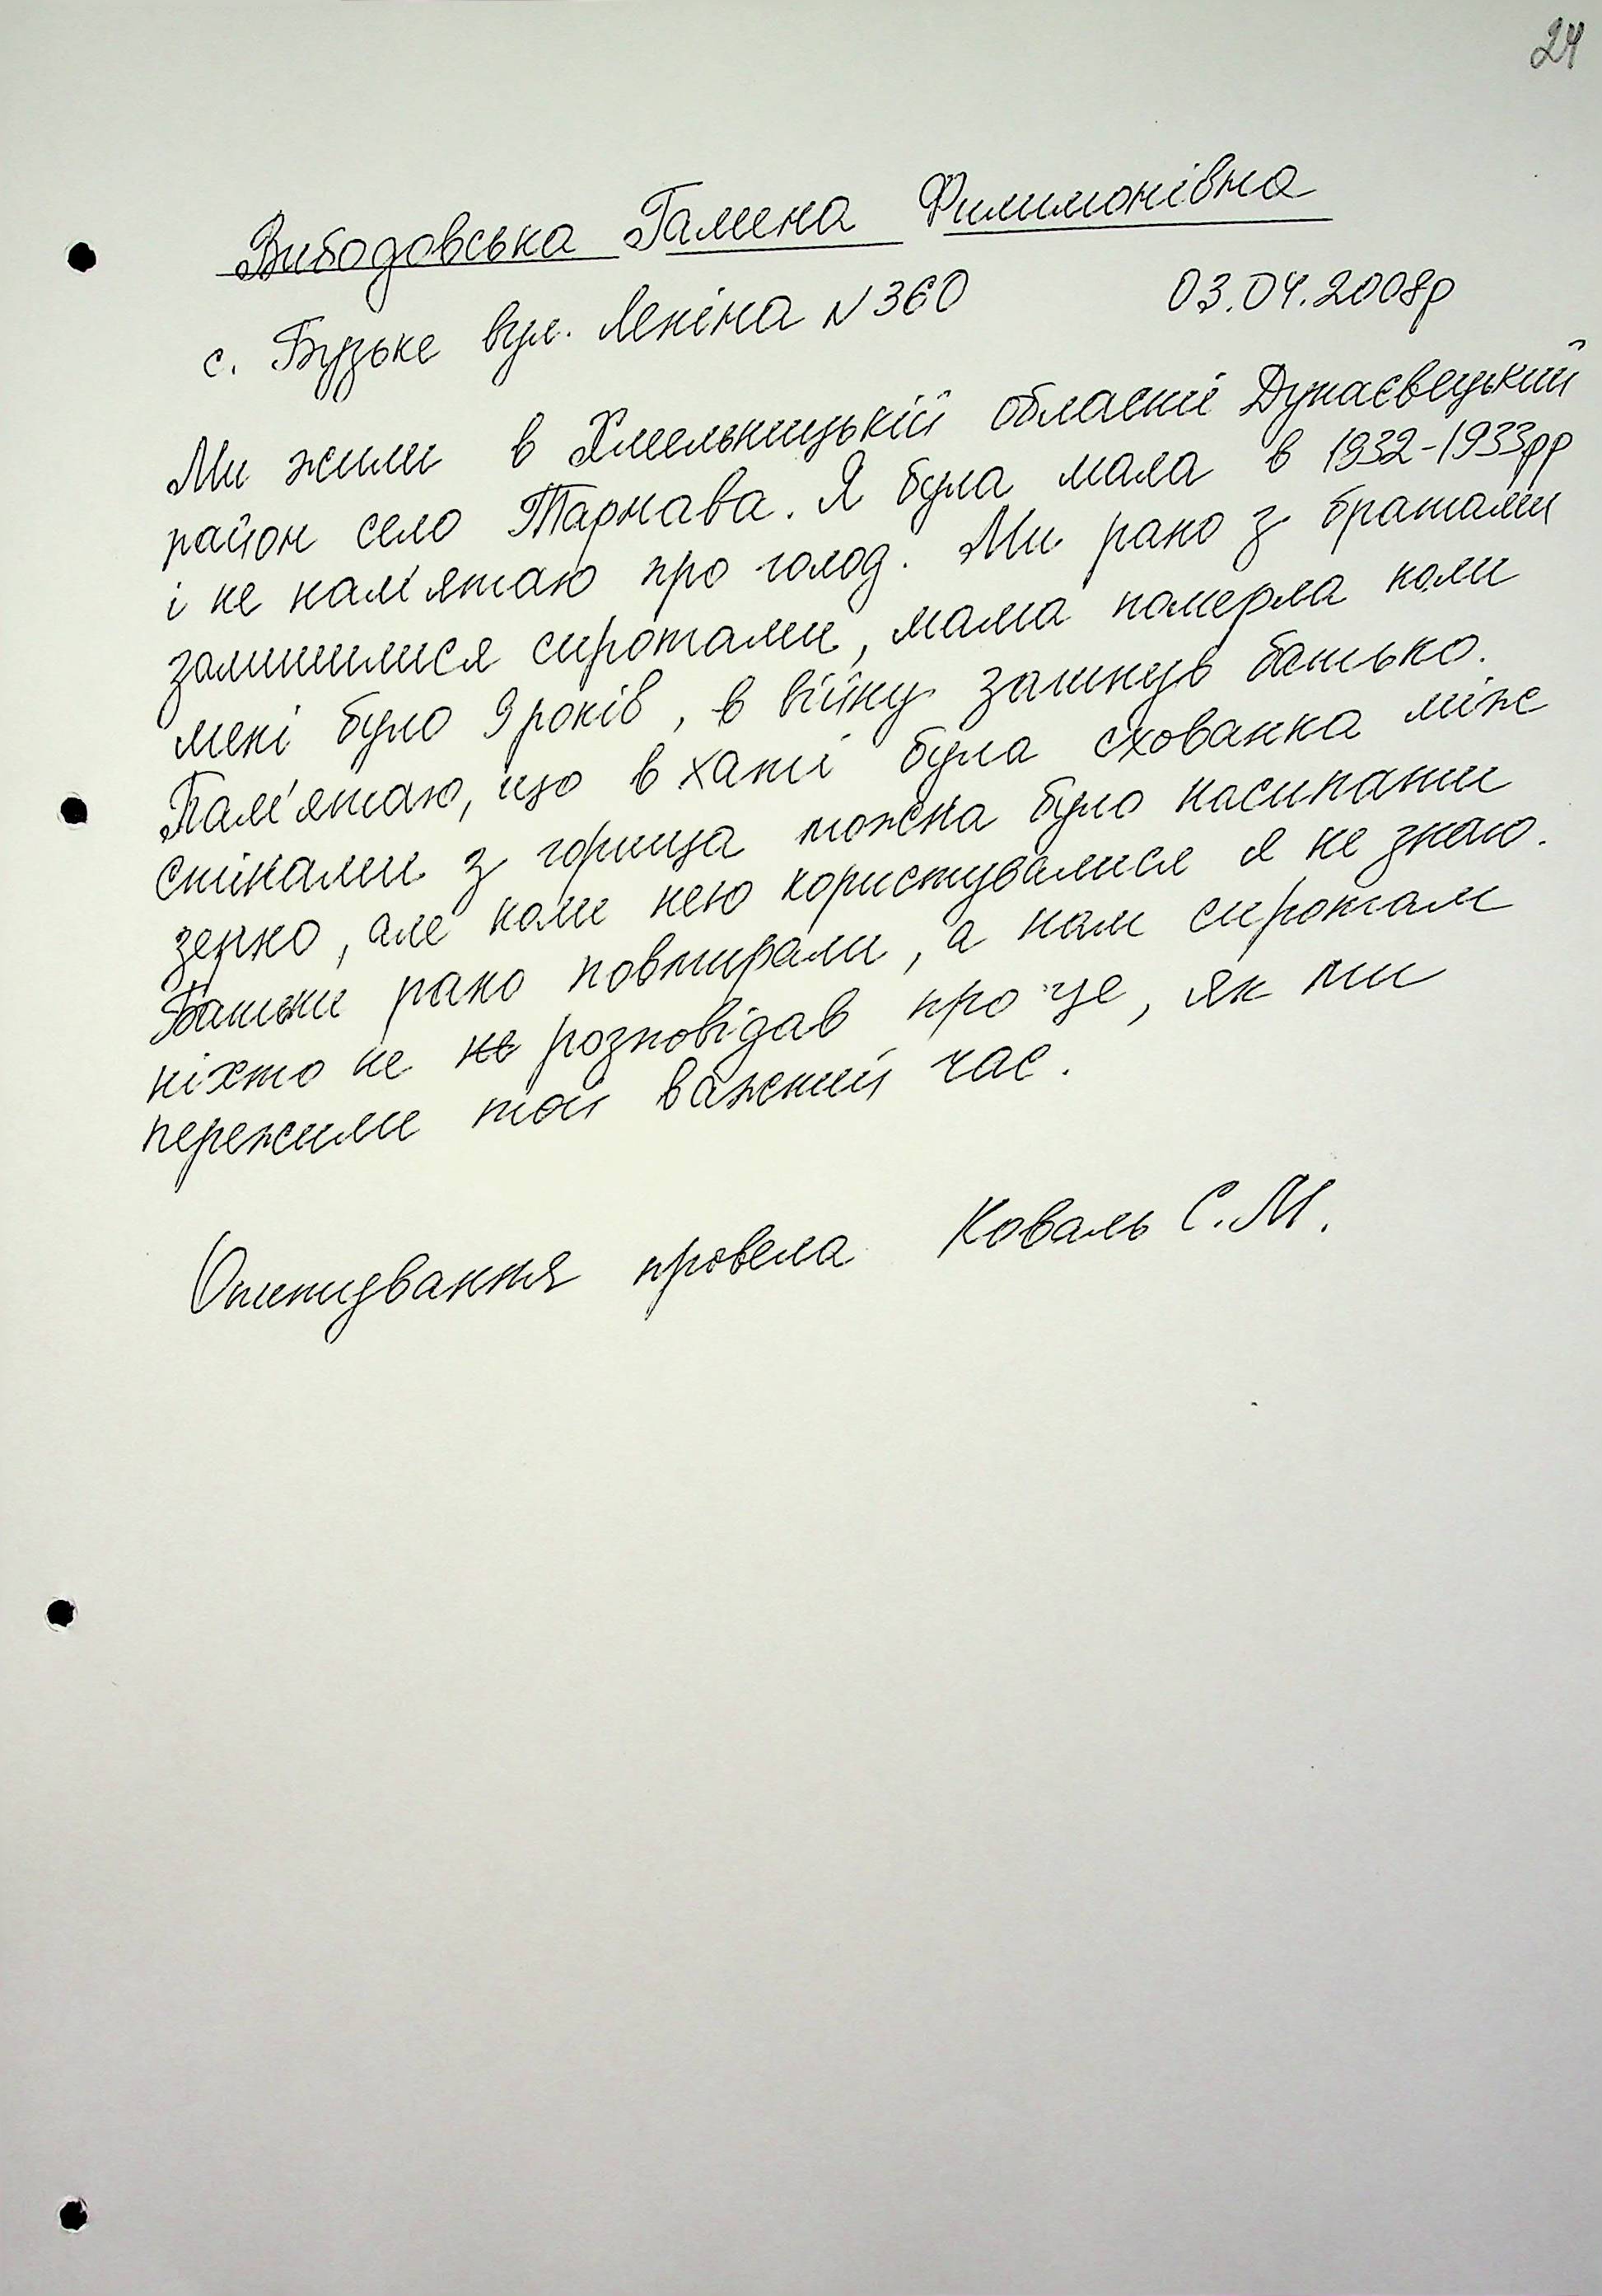 24
Вибодовська Галина Филимонівна
с. Бузьке вул. Леніна N 360 03.04.2008р
Ми жили в Хмельницькій області Дунаєвецький
район село Тарнава. Я була мала в 1932-1933рр
і не пам'ятаю про голод. Ми рано з братами
залишилися сиротами, мама померла коли
мені було 9 років, в війну загинув батько.
Пам'ятаю, що в хаті була схованка між
стінами з горища можна було насипати
зерно, але коли нею користувалися я не знаю.
Батьки рано повмирали, а нам сиротам
ніхто не не розповідав про це, як ми
пережили той важкий час.
Опитування провела Коваль С.М.